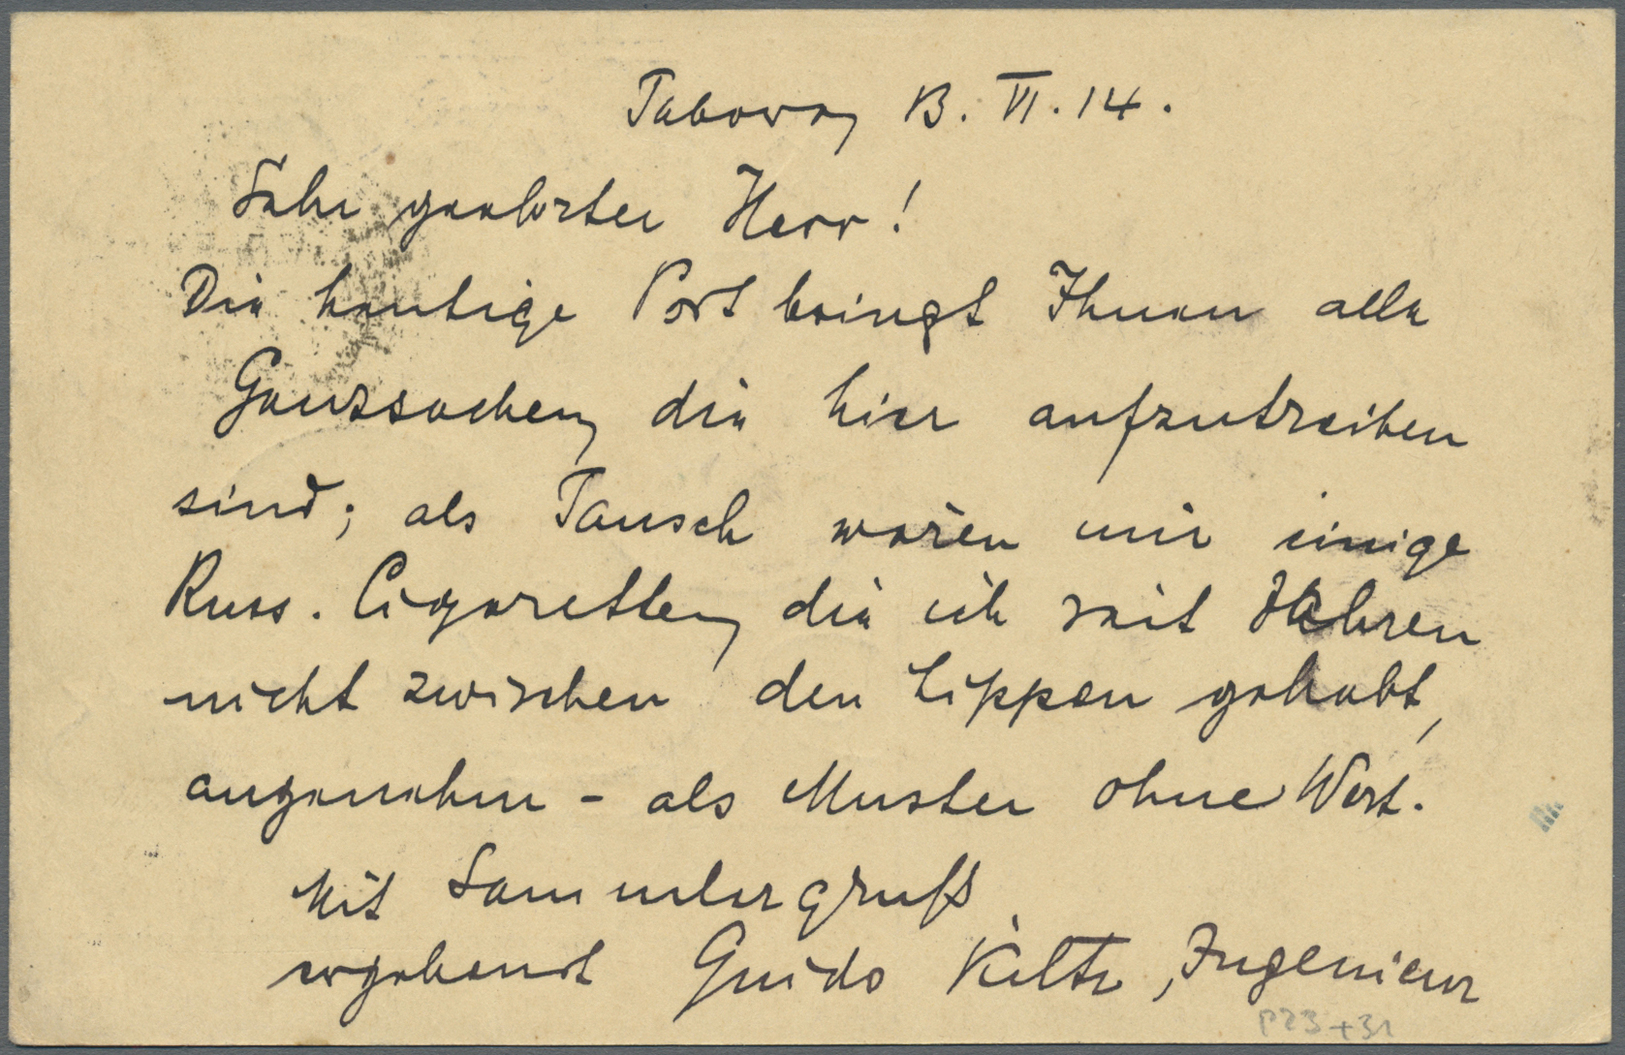 Tabora, 13. VI. 14.
Sehr geehrter Herr!
Die heutige Post bringt Ihnen alle
Ganzsachen, die hier aufzutreiben
sind; als Tausch wären mir einige
Russ. Cigaretten, die ich seit Jahren
nicht zwischen den Lippen gehabt,
angenehm - als Muster ohne Wert.
Mit Sammlergruß
ergebenst Guido , Ingenieur
P23+31